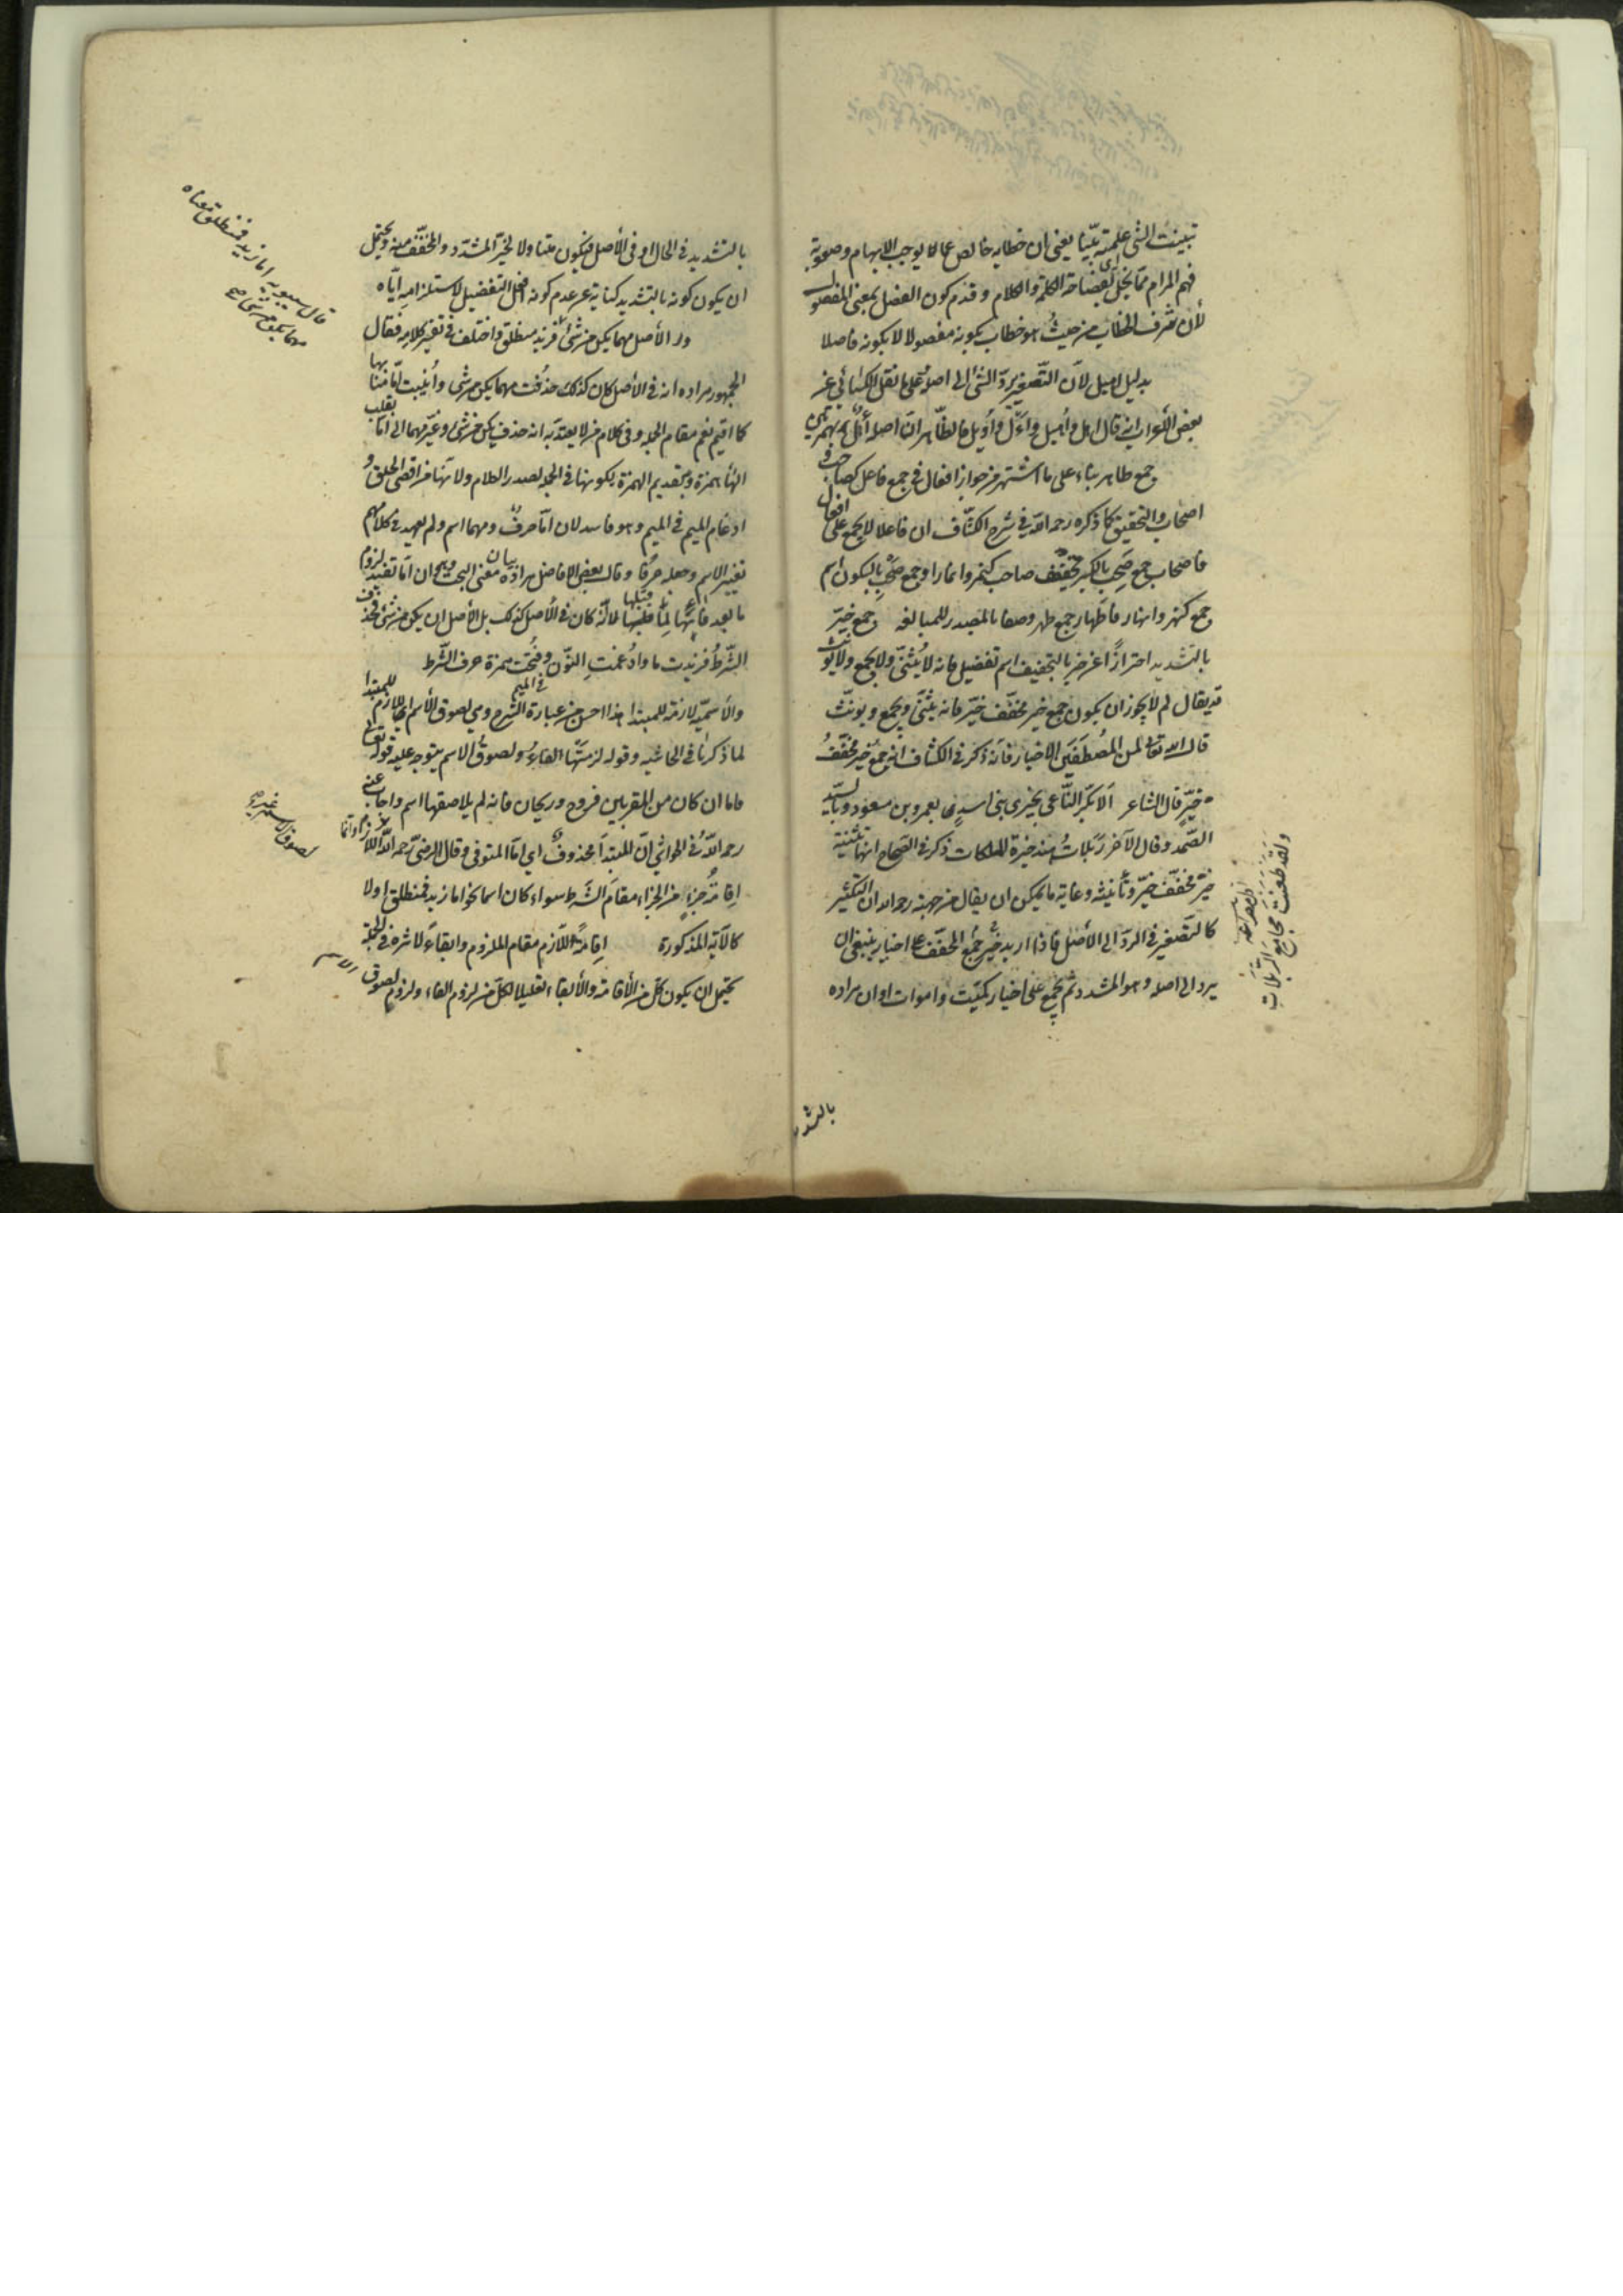 تبينت الشئ علمته بيّنا يعنى ان خطابه خالص عما يوجب الابهام وصعوبة
فهم المرام مما يخل بفصاحة الكلمة والكلام وقدم كون الفصل بمعنى المفصول
لأن شرف الخطاب من حيث هو خطاب بكونه مفصولا لا بكونه فاصلا
بدليل اهيل لأن التّصغير يردّ الشئ الى اصله على ما نقل الكسائى عن
بعض الأعراب انه قال اهل واُهيل وآل واُويل فالظّاهر انّ اصله أأل بهمزتين
وجمع طاهر بناء على ما اشتهر من جواز افعال فى جمع فاعل كصاحب و
اصحاب والتحقيق كما ذكره رحمه الله فى شرح الكشّاف ان فاعلا لا يجمع على افعال
فاصحاب جمع صَحِب بالكسر تخفيف صاحب كنمر وانمار او جمع صَحْب بالسكون اسم
جمع كنهر وانهار فاطهار جمع طهر وصفا بالمصدر للمبالغه وجمع خيّر
بالتشديد احترازًا عن خير بالتخفيف اسم تفضيل فانه لا يُثنّى ولا يجمع ولا يؤنث
قد يقال لم لا يجوز ان يكون جمع خير مخفّف خيّر فانه يثنّى ويجمع ويونّث
قال الله تعالى لمن المُصْطَفَيْنَ الاخيار فانه ذكر فى الكشاف انه جمع خير مخفّفُ
خيّر قال الشاعر اَلا بَكَرَ النّاعى بخيرى بنى اسد بعمرو بن مسعود وبالسيّد
الصّمد وقال الآخر رَبَلات هند خيرة الملكات ذكر فى الصّحاح انها تثنية
خير مخفّف خيّر وتأنيثه وغاية ما يمكن ان يقال من جهته رحمه الله ان التكثير
كالتصغير فى الردّ الى الأصل فاذا اريد جمع المخفّف على اخيار ينبغى ان
يرد الى اصله وهو المشدد ثم يجمع على اخيار كميّت واموات او ان مراده
ولقد طعنت مجامع الربلات
بالتشد
بالتشديد فى الحال او فى الأصل فيكون متناولا لخيّر المشدّد والمخفّف منه ويحتمل
ان يكون كونه بالتشديد كناية عن عدم كونه افعل التفضيل لاستلزامه ايّاه
ور الأصل مهما يكن من شئ فزيد منطلق واختلف فى تفسير كلامه فقال
الجمهور مراده انه فى الأصل كان كذلك حذفت مهما يكن من شئ وأنيبت امّا منابها
كما اقيم نعم مقام الجمله وفى كلام من لا يعتدّ به انه حذف يكن من شئ وغيّر مهما الى امّا بقلب
الهاء همزة وبتقديم الهمزة لكونها فى الجمله لصدر الكلام ولانها من اقصى الحلق و
ادغام الميم فى الميم وهو فاسد لان امّا حرفٌ ومهما اسم ولم يعهد فى كلامهم
تغيير الاسم وجعله حرفا وقال بعض الافاضل مراده بيان معنى البحت وهو ان امّا تفيد لزوم
ما بعد فائها لما قبلها لا انّه كان فى الأصل كذلك بل الأصل ان يكن من شئ فحذف
الشّرطُ فزيدت ما وادُغمت النّون فى الميم وفُتحت همزة حرف الشّرط
والأسميّة لازمة للمبتدا هذا احسن من عبارة الشرح وهى لصوق الأسم اللازم للمبتدا
لما ذكرنا فى الحاشيه وقوله لزمتها الفاءُ ولصوقُ الاسم يتوجه عليه قوله تعالى
فاما ان كان من المقربين فروح وريحان فانه لم يلاصقها اسم واجاب عنه
رحمه اللهُ فى الحواشى انّ المبتدأ محذوفٌ اى امّا المتوفى وقال الرضىّ رحمه الله
اِقامةُ جزءٍ من الجزاء مقامَ الشّرط سواء كان اسما نحو اما زيد فمنطلق او لا
كالآية المذكورة اِقامةً اللّازم مقام الملزوم وابقاءً لاثره فى الجملة
يحتمل ان يكون كلّ من الأقامة والأبقاء تعليلا لكلّ من لزوم الفاء ولزوم لصوق الاسم
قال سيبويه اما زيد فمنطلق معناه
مهما يكن من شئ صح